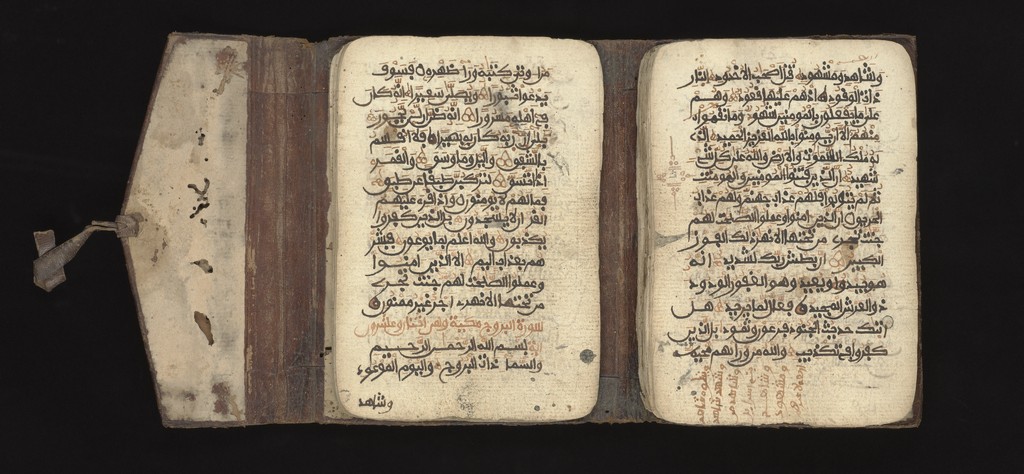 من اوتي كتبه ورا ظهره فسوف
يدعوا ثبورا ويصلى سعيرا انه كان
في اهله مسرورا انه ظن ان لن يحور
بلى ان ربه كان به بصيرا فلا اقسم
بالشفق واليل وما وسق والقمر
اذا اتسق لتركبن طبقا عن طبق
فما لهم لا يومنون واذا قرئ عليهم
القران لا يسجدون بل الذين كفروا
يكذبون والله اعلم بما يوعون فبشر
هم بعذاب اليم الا الذين امنوا
وعملوا الصلحت لهم جنت تجري
من تحتها الانهر اجر غير ممنون
سورة البروج مكية وهي اثنان وعشرون
بسم الله الرحمن الرحيم
والسما ذات البروج واليوم الموعود
وشاهد
وشاهد ومشهود قتل اصحب الاخدود النار
ذات الوقود اذ هم عليها قعود وهم
على ما يفعلون بالمومنين شهود وما نقموا
منهم الا ان يومنوا بالله العزيز الحميد الذي
له ملك السموت والارض والله على كل شيء
شهيد ان الذين فتنوا المومنين والمومنت
ثم لم يتوبوا فلهم عذاب جهنم ولهم عذاب
الحريق ان الذين امنوا وعملوا الصلحت لهم
جنت تجري من تحتها الانهر ذلك الفوز
الكبير ان بطش ربك لشديد انه
هو يبدئ ويعيد وهو الغفور الودود
ذو العرش المجيد فعال لما يريد هل
اتيك حديث الجنود فرعون وثمود بل الذين
كفروا في تكذيب والله من ورائهم محيط